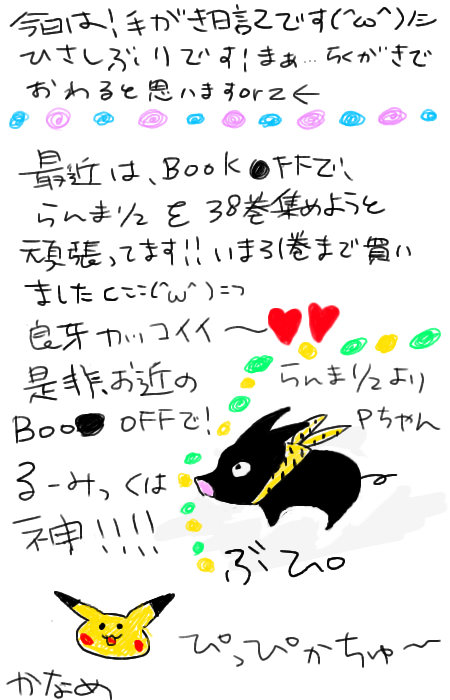 今日は!手がき日記です(^ω^)ﾆｼ
ひさしぶりです!まぁ…らくがきで
おわると思いますorz←
最近は、BOOK●FFで、
らんま1/2を38巻集めようと
頑張ってます!!いま31巻まで買い
ましたc⊃(^ω^)⊃
良牙カッコイイ〜
是非、お近の
BOO● OFFで!
らんま1/2より
Pちゃん
るーみっくは
神!!!!
ぶひ。
ぴっぴかちゅ〜
かなめ